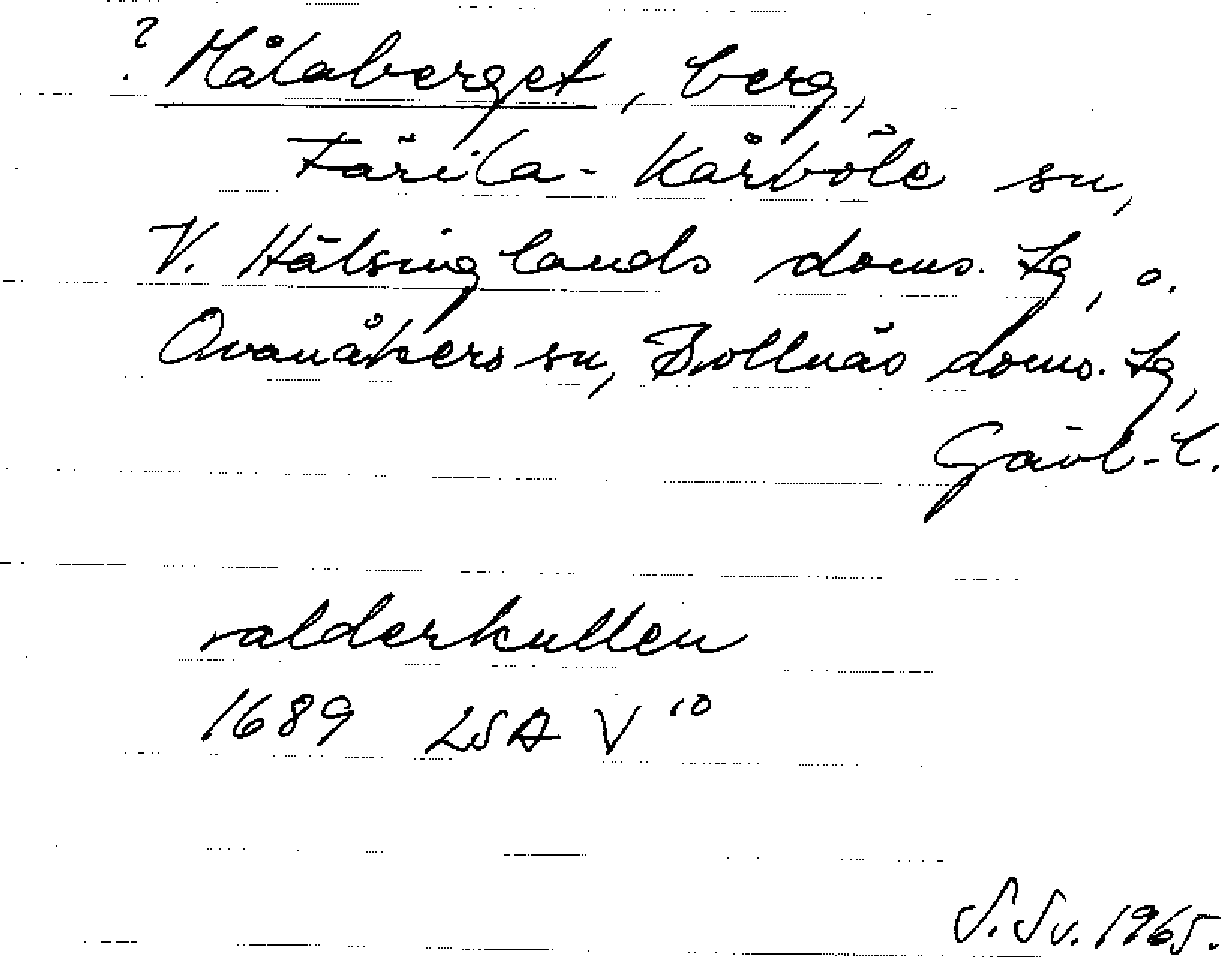 ? Målaberget, berg,
Färila-Kårböle sn,
V. Hälsinglands doms. tg, o.
Ovanåkers sn, Bollnäs doms. tg,
Gävl. l.
valderkullen
1689 LSA V 10
S. Sv. 1965.